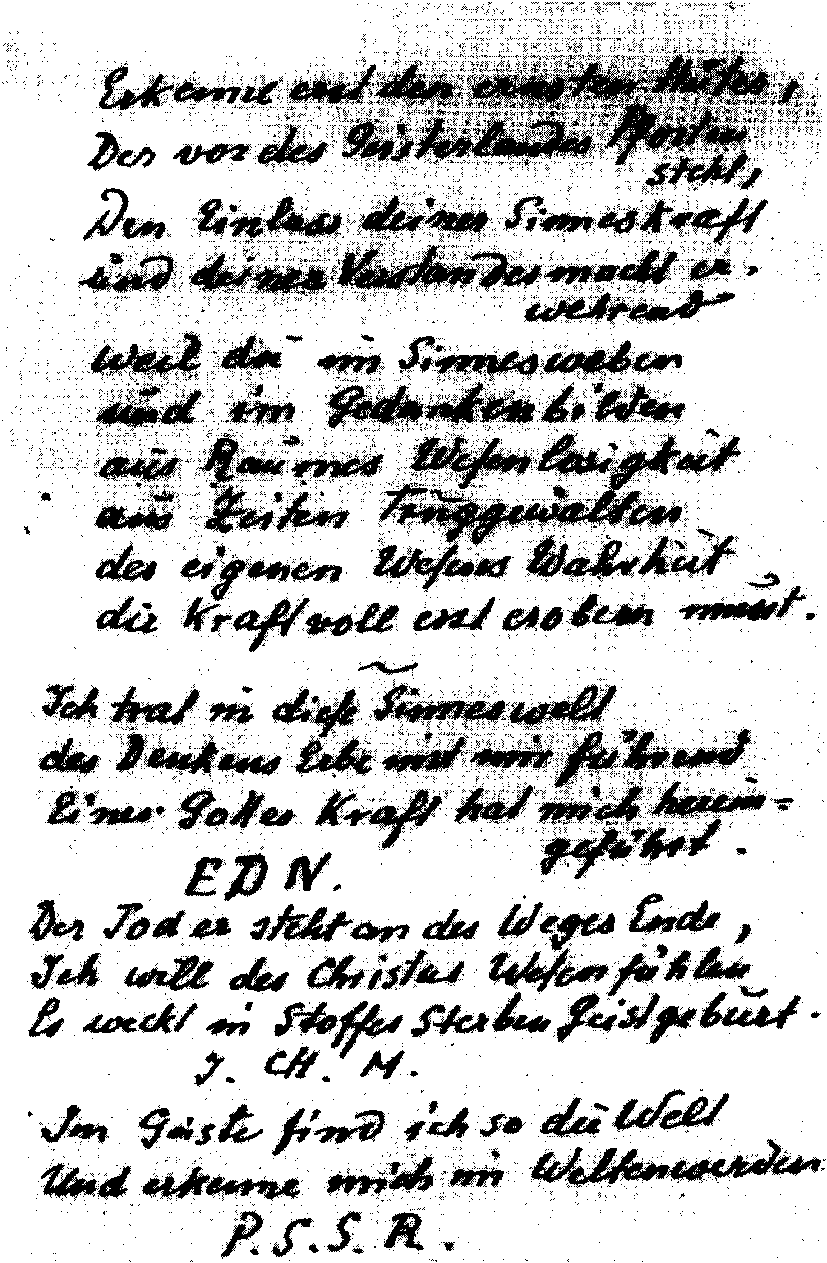 Erkenne erst den ernsten Hüter,
Der vor des Geisterlandes Pforten
steht,
Den Einlass deiner Sinneskraft
und deines Verstandesmacht er.
wehrend
Weil du im Sinnesweben
und im Gedankenbilden
aus Raumes Wesenlosigkeit
aus Zeiten Truggewalten
des eigenen Wesens Wahrheit
die Kraftvoll erst erobern musst.
Ich trat in diese Sinneswelt
des Denkens Erbe mit mir führend
Eines Gottes Kraft hat mich herein-
geführt.
E D N.
Der Tod er steht an des Weges Ende,
Ich will des Christus Wesen fühlen
Es weckt in Stoffes Sterben Geistgeburt.
J. CH. M.
Im Geiste find ich so die Welt
Und erkenne mich im Weltenwerden
P. S. S. R.